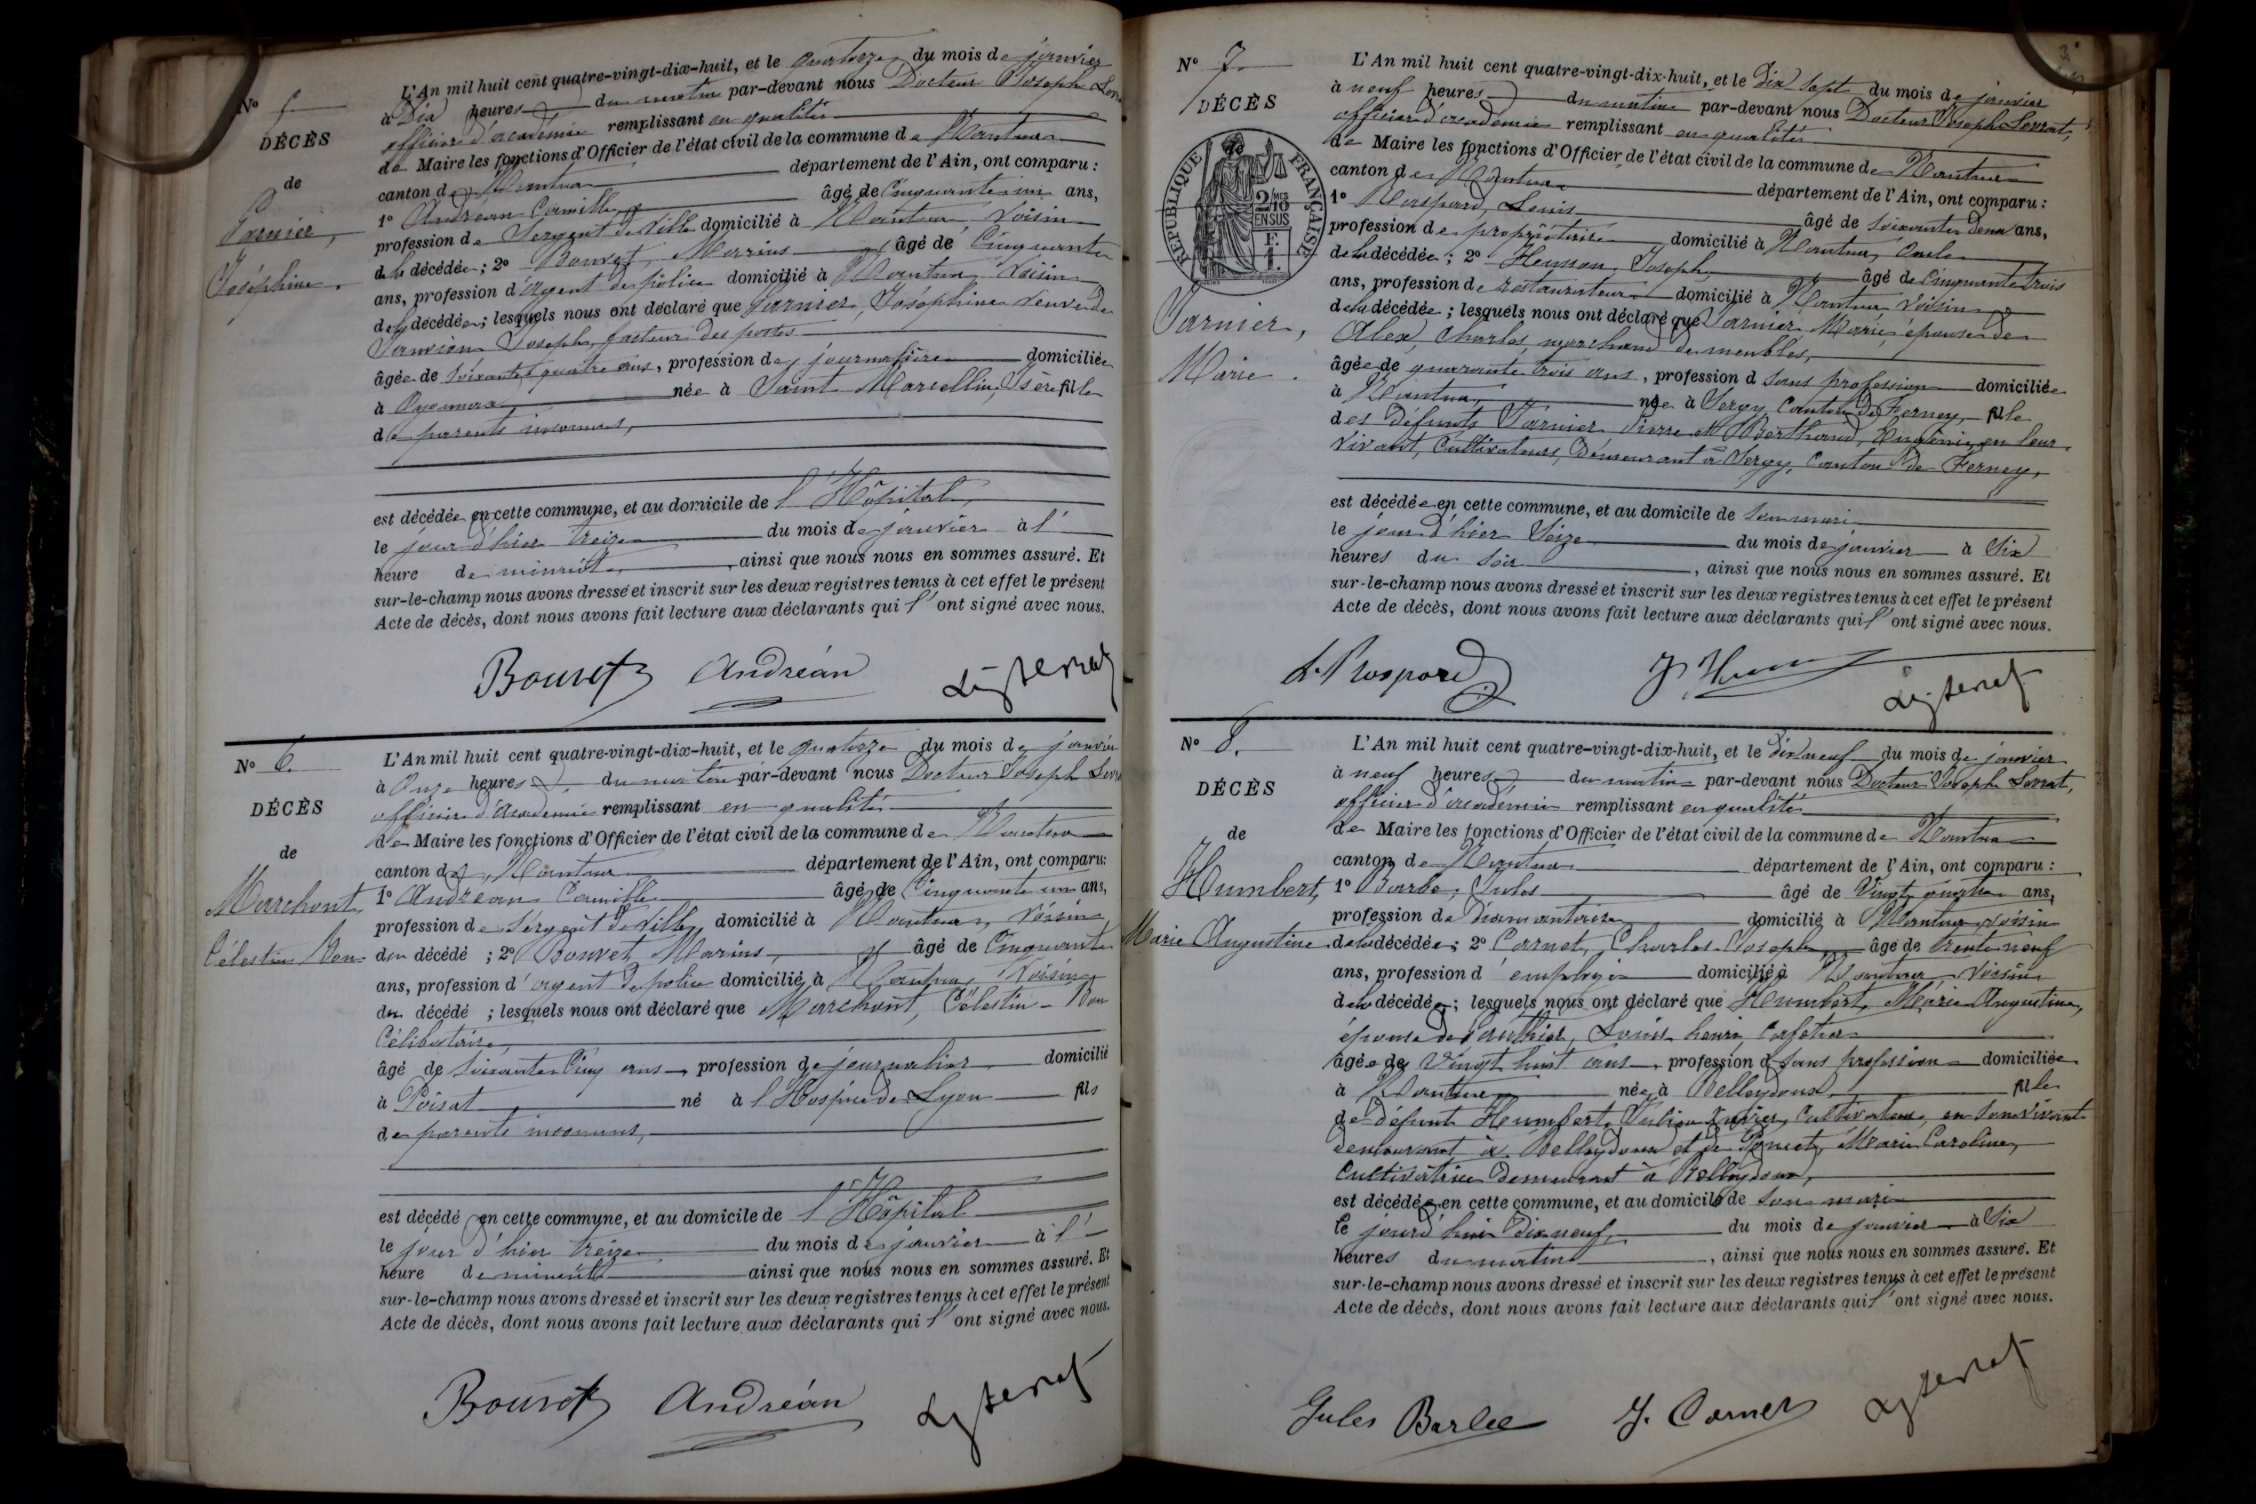 N° 5
DÉCÈS
de
Garnier,
Joséphine.
L'An mil huit cent quatre-vingt-dix-huit, et le quatorze du mois de janvier
à Dix heures du matin par-devant nous Docteur Joseph
officier d'académie remplissant en qualité
de Maire les fonctions d'Officier de l'état civil de la commune de Nantua
canton de Nantua département de l'Ain, ont comparu :
1° Andréan Camille âgé de Cinquante un ans,
profession de Sergent de Ville domicilié à Nantua, voisin
de la décédée ; 2° Bouvet, Marius âgé de Cinquante
ans, profession d'agent de police domicilié à Nantua voisin
de la décédée ; lesquels nous ont déclaré que Garnier, Joséphine veuve de
Joseph, facteur des postes
âgée de soixante quatre ans, profession de journalière domiciliée
à Oyonnax née à Saint Marcellin, Isère fille
de parents inconnus,
est décédée en cette commune, et au domicile de l'Hôpital,
le jour d'hier treize du mois de janvier à l'
heure de minuit, ainsi que nous nous en sommes assuré. Et
sur-le-champ nous avons dressé et inscrit sur les deux registres tenus à cet effet le présent
Acte de décès, dont nous avons fait lecture aux déclarants qui l'ont signé avec nous.
Bouvet Andréan
N° 6.
DÉCÈS
de
Marchont
Célestin Bon
L'An mil huit cent quatre-vingt-dix-huit, et le quatorze du mois de janvier
à Onze heures du matin par-devant nous Docteur Joseph
officier d'Académie remplissant en qualité
de Maire les fonctions d'Officier de l'état civil de la commune de Nantua
canton de Nantua département de l'Ain, ont comparu:
1° Andréan Camille âgé de Cinquante un ans,
profession de Sergent de Ville, domicilié à Nantua, voisin
du décédé ; 2° Bouvet Marius, âgé de Cinquante
ans, profession d'agent de police domicilié à Nantua, voisin
du décédé ; lesquels nous ont déclaré que Marchont, Célestin-Bon
Célibataire,
âgé de soixante Cinq ans, profession de journalier domicilié
à Poisat né à l'Hospice de Lyon fils
de parents inconnus,
est décédé en cette commune, et au domicile de l'Hôpital
le jour d'hier treize du mois de janvier à l'
heure de minuit ainsi que nous nous en sommes assuré. Et
sur-le-champ nous avons dressé et inscrit sur les deux registres tenus à cet effet le présent
Acte de décès, dont nous avons fait lecture aux déclarants qui l'ont signé avec nous.
Bouvet Andréan
N° 7.
DÉCÈS
RÉPUBLIQUE FRANÇAISE
2/10MES
EN SUS
Varnier,
Marie.
L'An mil huit cent quatre-vingt-dix-huit, et le Dix Sept du mois de janvier
à neuf heures du matin par-devant nous Docteur Joseph Serrat,
officier d'académie remplissant en qualité
de Maire les fonctions d'Officier de l'état civil de la commune de Nantua
canton de Nantua département de l'Ain, ont comparu :
1° Louis âgé de soixante deux ans,
profession de propriétaire domicilié à Nantua, oncle
de la décédée ; 2° Joseph âgé de Cinquante trois
ans, profession de restaurateur domicilié à Nantua voisin
de la décédée ; lesquels nous ont déclaré que Varnier Marie, épouse de
Alex, Charles, marchand de meubles,
âgée de quarante trois ans, profession d sans profession domiciliée
à Nantua, née à Sergy, Canton de Ferney, fille
des défunts Varnier Pierre et Berthaud, Eugénie, en leur
vivant, Cultivateurs, Demeurant à Sergy, Canton de Ferney,
est décédée en cette commune, et au domicile de son mari
le jour d'hier Seize du mois de janvier à Six
heures du soir, ainsi que nous nous en sommes assuré. Et
sur-le-champ nous avons dressé et inscrit sur les deux registres tenus à cet effet le présent
Acte de décès, dont nous avons fait lecture aux déclarants qui l'ont signé avec nous.
N° 8.
DÉCÈS
de
Humbert,
Marie Augustine
L'An mil huit cent quatre-vingt-dix-huit, et le dix neuf du mois de janvier
à neuf heures du matin par-devant nous Docteur Joseph Serrat,
officier d'académie remplissant en qualité
de Maire les fonctions d'Officier de l'état civil de la commune de Nantua
canton de Nantua département de l'Ain, ont comparu :
1° Barbe, Jules âgé de Vingt quatre ans,
profession de diamantaire domicilié à Nantua voisin
de la décédée ; 2° Carnet, Charles Joseph âgé de trente neuf
ans, profession d'employé domicilié à Nantua voisin
de la décédée ; lesquels nous ont déclaré que Humbert, Marie Augustine,
épouse de Gauthier, Louis henri, Cafetier
âgée de Vingt huit ans, profession d sans profession domiciliée
à Nantua née à Belleydoux fille
de défunt Humbert, Julien Xavier, Cultivateur, en son vivant
demeurant à Belleydoux et de Poncet, Marie Caroline,
Cultivatrice demeurant à Belleydoux,
est décédée en cette commune, et au domicile de son mari
le jourd'hui Dix neuf, du mois de janvier à Six
heures du matin, ainsi que nous nous en sommes assuré. Et
sur-le-champ nous avons dressé et inscrit sur les deux registres tenus à cet effet le présent
Acte de décès, dont nous avons fait lecture aux déclarants qui l'ont signé avec nous.
Jules Barbe J. Carnet